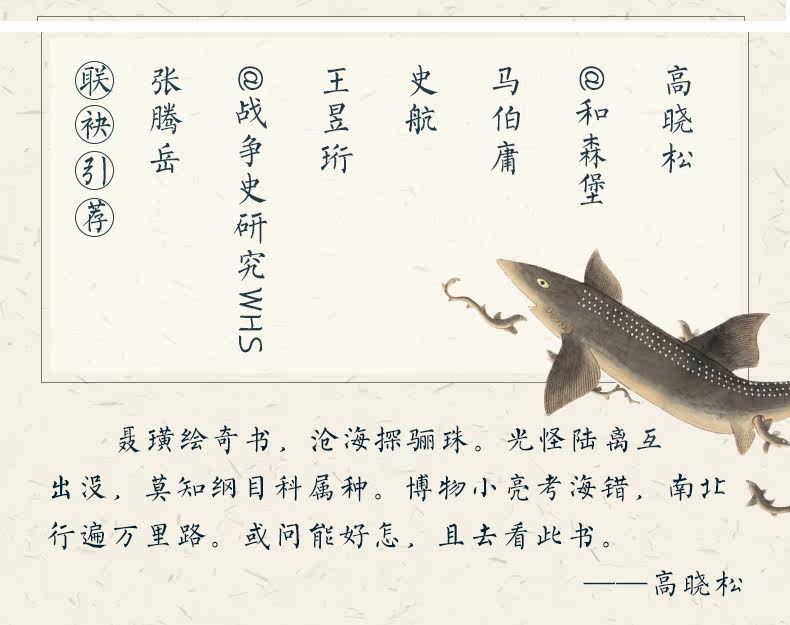 高晓松
@和森堡
马伯庸
史航
王昱珩
@战争史研究WHS
张腾岳
联袂引荐
聂璜绘奇书，沧海探骊珠。光怪陆离互
出没，莫知纲目科属种。博物小亮考海错，南北
行遍万里路。或问能好怎，且去看此书。
——高晓松